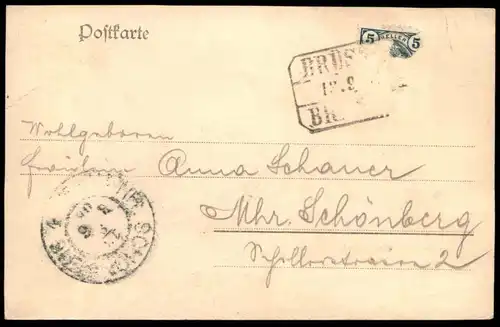 Postkarte
5 HELLER 5
BRÜS
BR
Wohlgeboren
Fräulein Anna Schauer
Mhr. Schönberg
Schillerstrasse 2